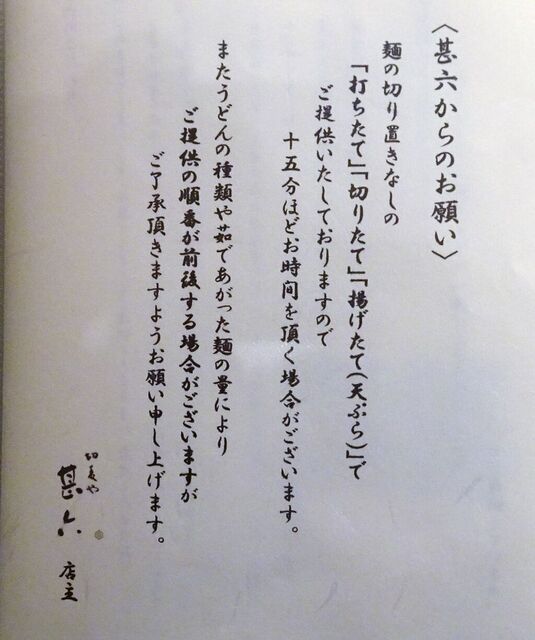 〈甚六からのお願い〉
麺の切り置きなしの
「打ちたて」「切りたて」「揚げたて(天ぷら)」で
ご提供いたしておりますので
十五分ほどお時間を頂く場合がございます。
またうどんの種類や茹であがった麺の量により
ご提供の順番が前後する場合がございますが
ご了承頂きますようお願い申し上げます。
切麦や
甚六
店主